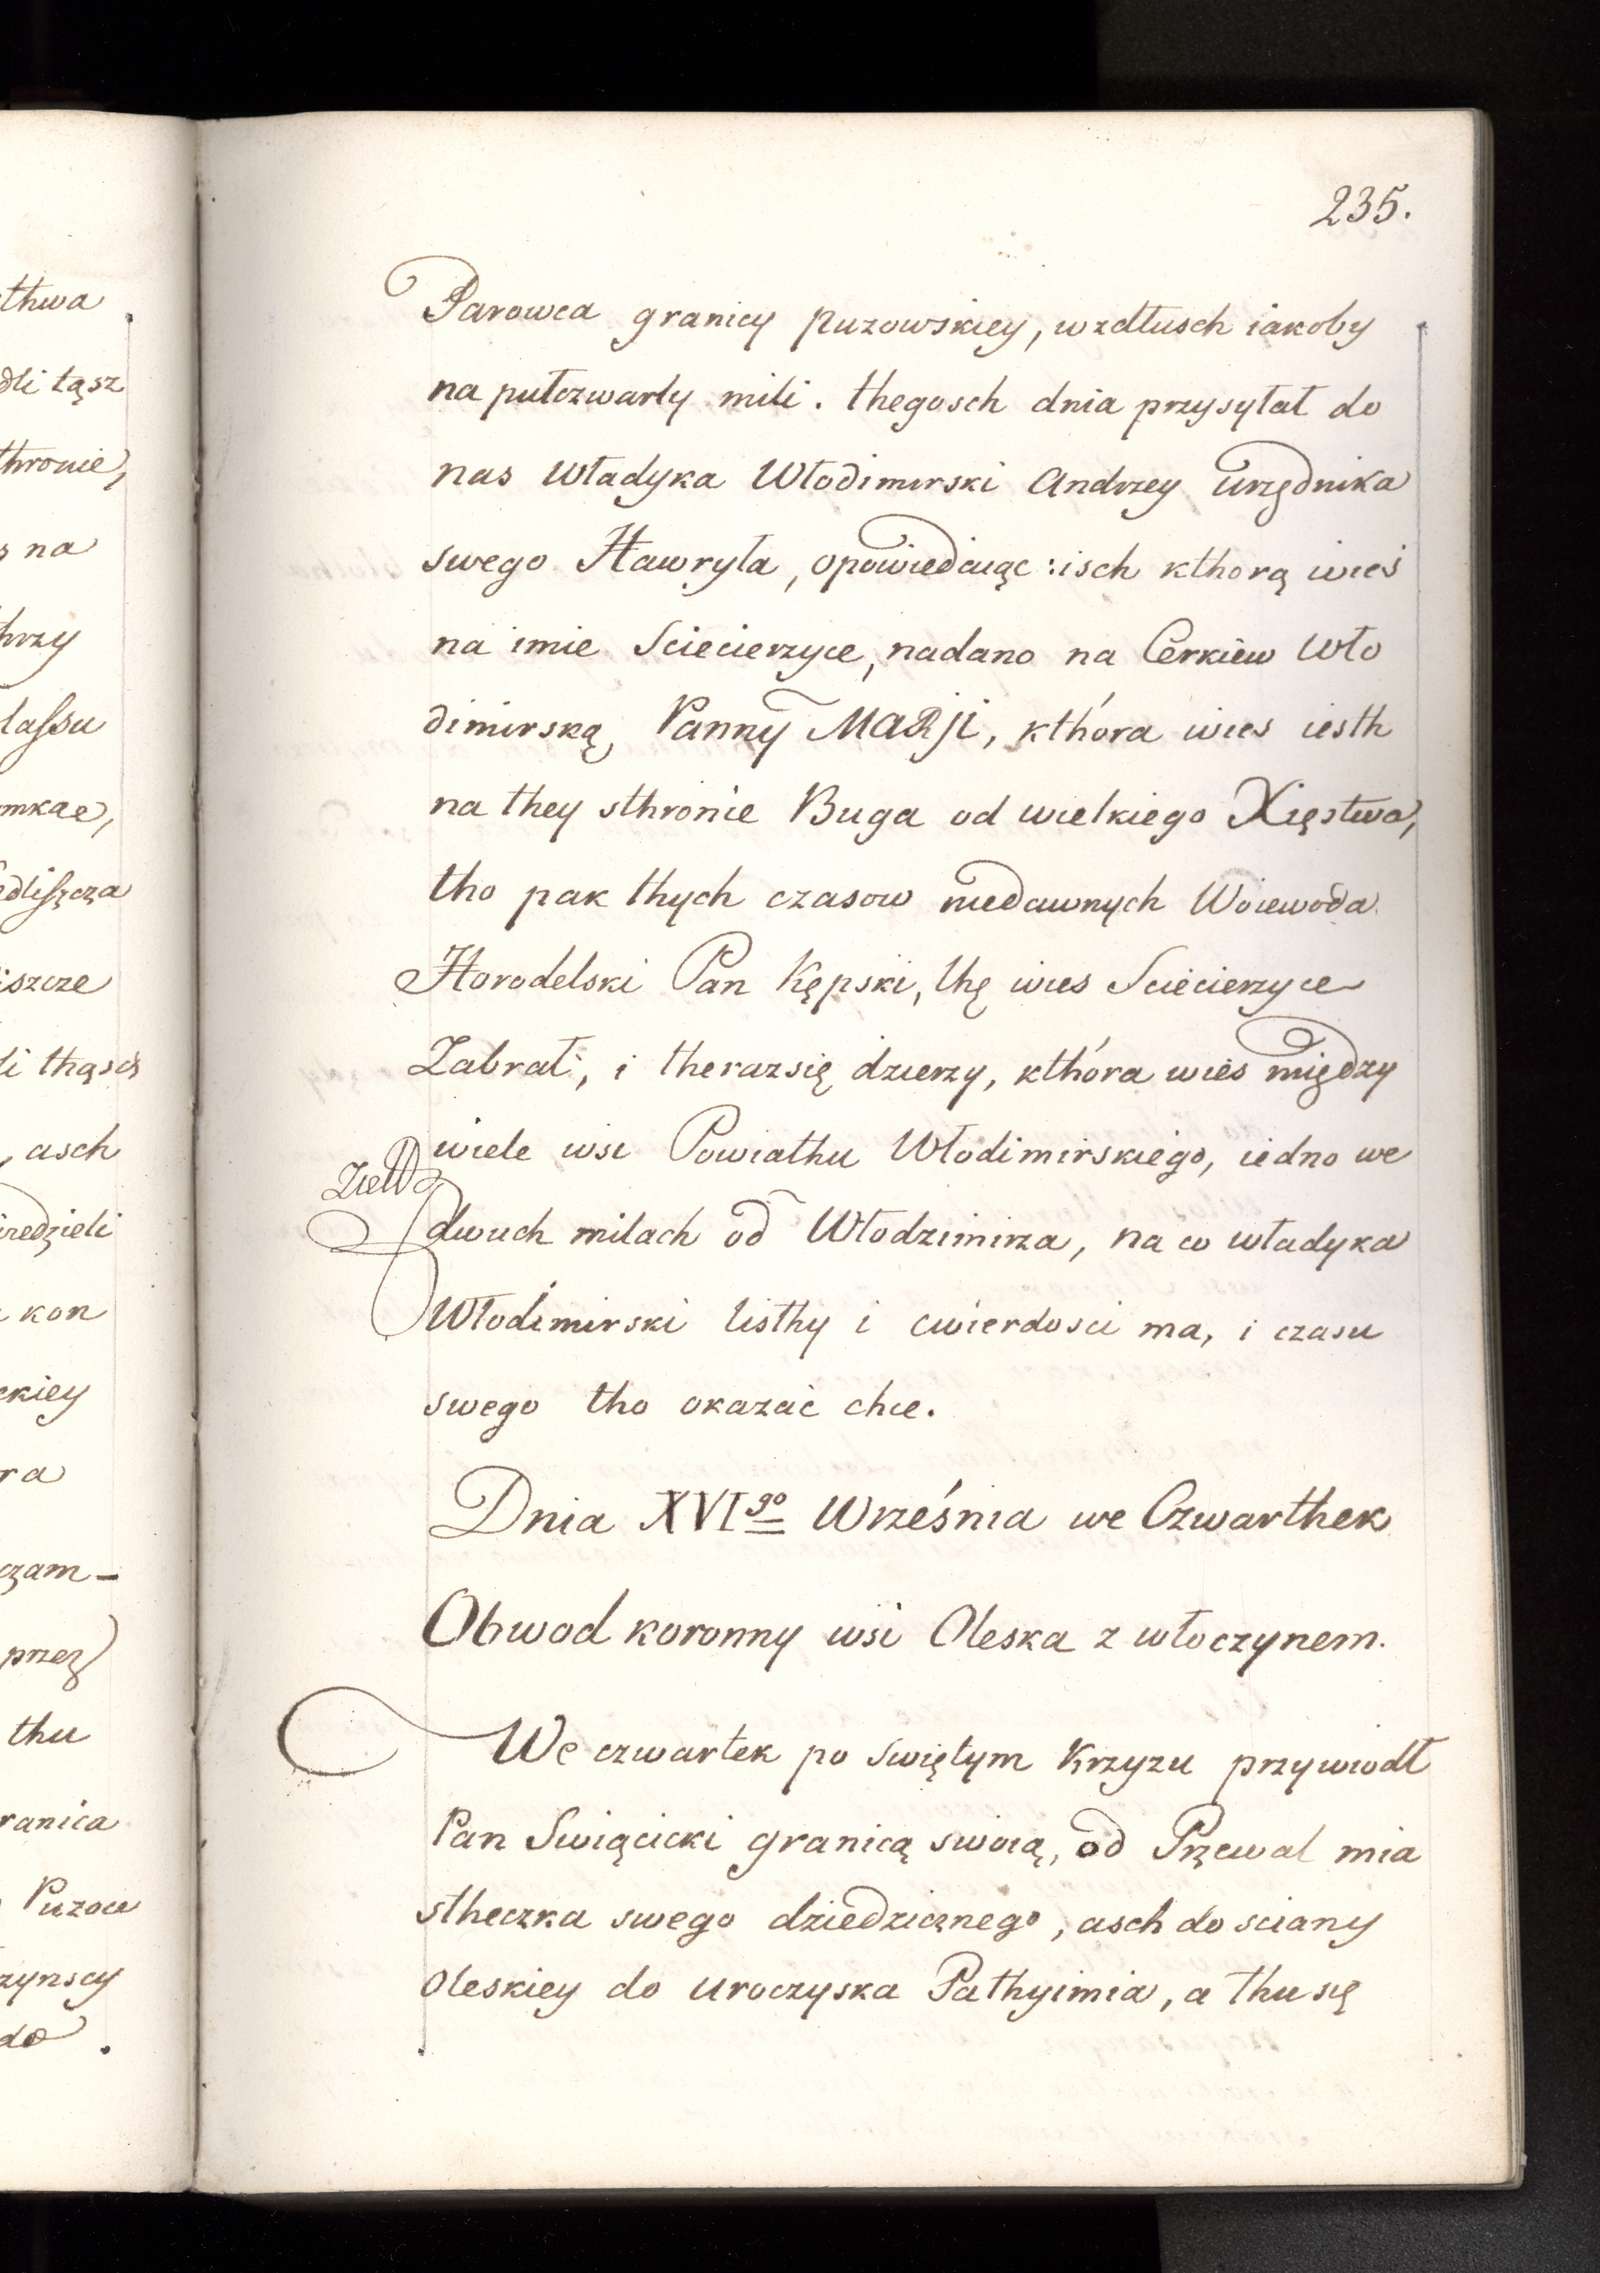 235.
Parowca granicy puzowskiey, wzdłusch iakoby
na pułczwarty mili. thegosch dnia przysyłał do
nas władyka Włodimirski Andrzey urzędnika
swego Hawryła, opowiedaiąc: isch kthorą wies
na imie Sciecierzyce, nadano na Cerkiew Wło
dimirską, Panny MARJI, kthóra wies iesth
na they sthronie Buga od wielkiego Xięstwa,
tho pak thych czasow niedawnych Woiewoda
Horodelski Pan Kępski, thę wies Sciecierzyce
Zabrał, i therazsię dzierzy, kthóra wies między
wiele wsi Powiathu Włodimirskiego, iedno we
dwuch milach od Włodzimirza, na co władyka
Włodimirski listhy i cwierdosci ma, i czasu
swego tho okazać chce.
Dnia XVIgo Września we Czwarthek
Obwod koronny wsi Oleska z włoczynem.
We czwartek po swiętym Krzyzu przywiodł
Pan Swiącicki granicą swoią, od Przewal mia
stheczka swego dziedzicznego, asch do sciany
Oleskiey do uroczyska Pathyimia, a thu się
thwa
dli tąsz
thronie,
na
hrzy
lassu
mkae,
edliszcza
iszcze
li thąsch
, asch
iredzieli
kon
ckiey
ra
czam-
przez
thu
ranica
Puzow
zynscy
do